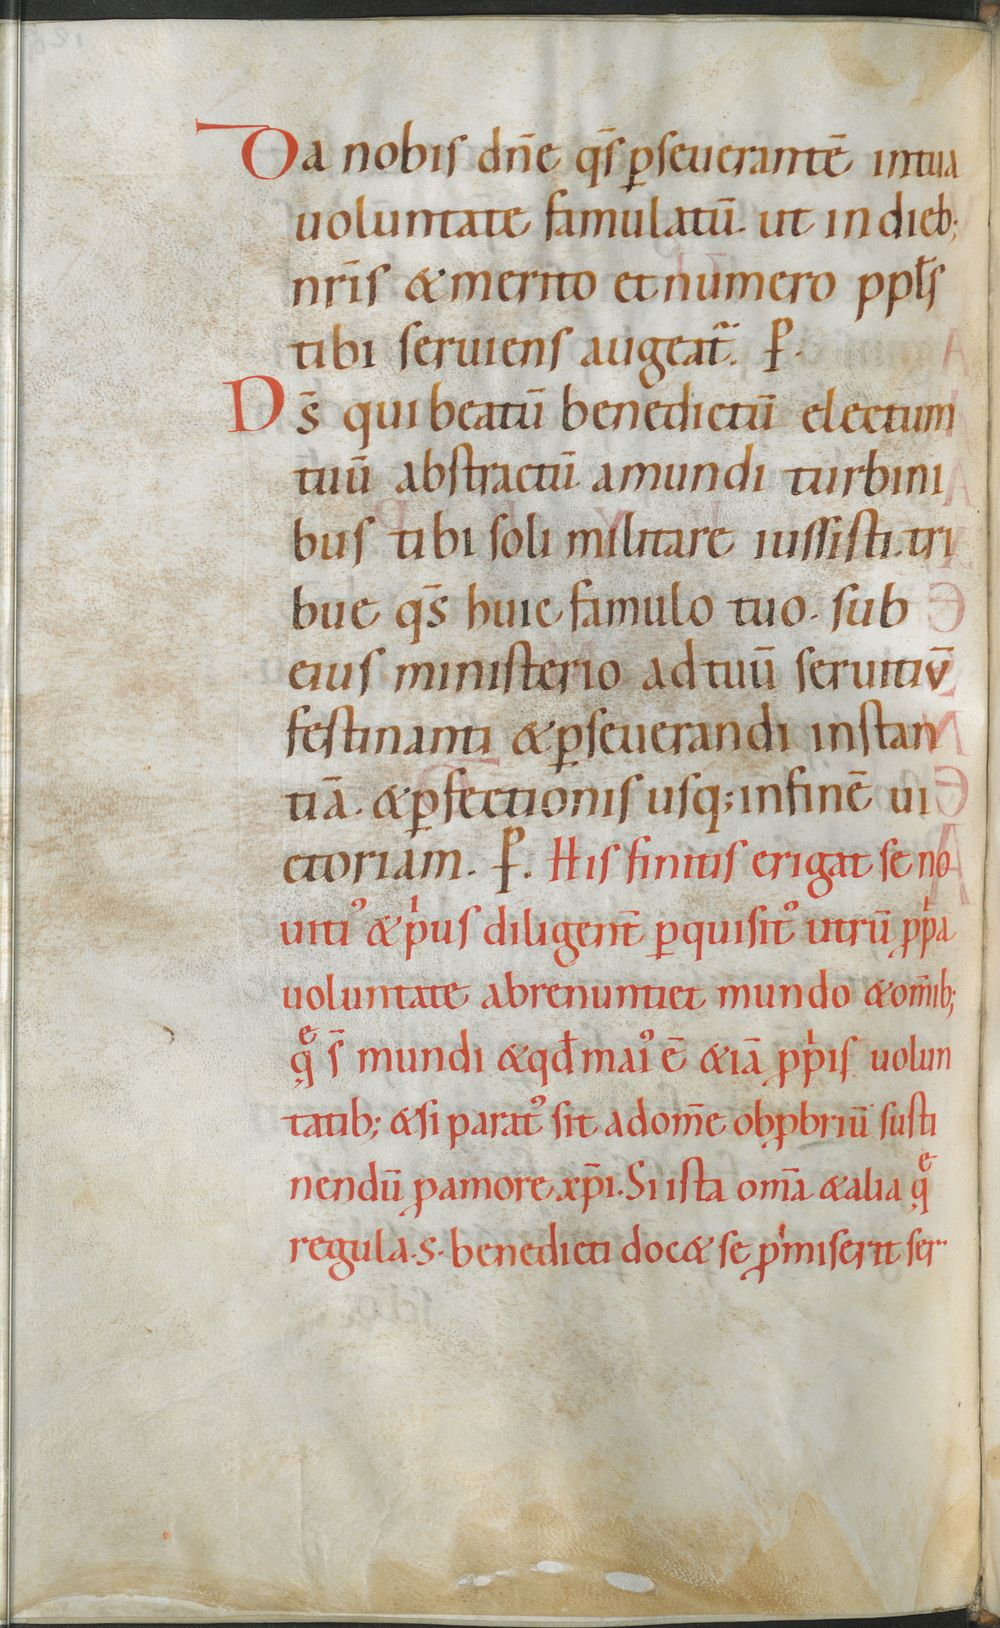 Da nobis dn̄e q̄s ꝑseuerantē in tua
uoluntate famulatū. ut in dieb;
nr̄is & merito et numero ppl̄s
tibi seruiens augeat᷑. P̄.
Ds̄ qui beatū benedictū electum
tuū abstractū a mundi turbini
bus tibi soli militare iussisti. tri
bue q̄s huic famulo tuo. sub
eius ministerio ad tuū seruitiū
festinanti & ꝑseuerandi instan
tiā. & ꝑfectionis usq; in finē ui
ctoriam. P̄. His finitis erigat se no
uitiꝰ & pͥus diligent̄ ꝑquisitꝰ utrū ꝓpͥa
uoluntate abrenuntiet mundo & om̄ib;
q̨ͤ s̄ mundi & qd̄ maiꝰ ē & iā ꝓpͥis uolun
tatib; & si paratꝰ sit ad om̄e obꝓbriū susti
nendū ꝑ amore xp̄i. Si ista om̄a & alia q̨ͤ
regula .s. benedicti doc& se pͥmiserit ser